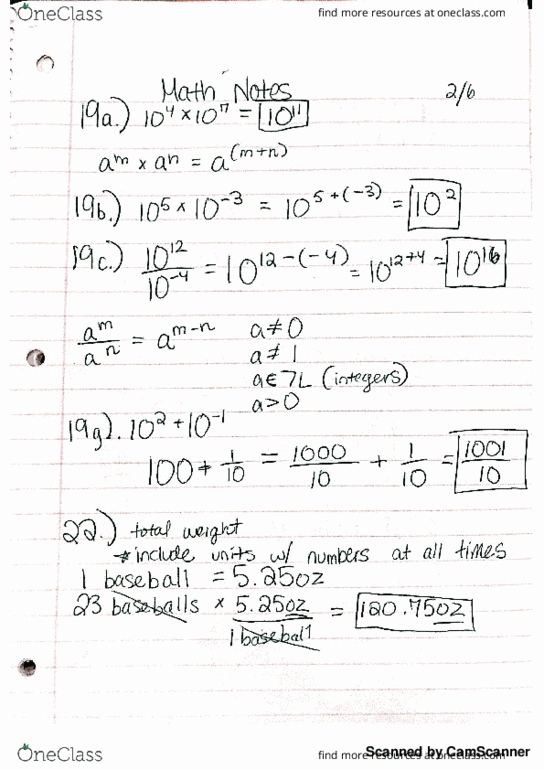 OneClass find more resources at oneclass.com
Math Notes 2/6
19a.) 10⁴ × 10⁷ = 10¹¹
aᵐ × aⁿ = a⁽ᵐ⁺ⁿ⁾
19b.) 10⁵ × 10⁻³ = 10⁵⁺⁽⁻³⁾ = 10²
19c.) 10¹²/10⁻⁴ = 10¹²⁻⁽⁻⁴⁾ = 10¹²⁺⁴ = 10¹⁶
aᵐ/aⁿ = aᵐ⁻ⁿ a ≠ 0
a ≠ 1
a ∈ ℤ (integers)
a > 0
19g). 10² + 10⁻¹
100 + 1/10 = 1000/10 + 1/10 = 1001/10
22.) total weight
* include units w/ numbers at all times
1 baseball = 5.25oz
23 baseballs × 5.25oz/1 baseball = 120.75oz
OneClass find more resources at oneclass.com
Scanned by CamScanner